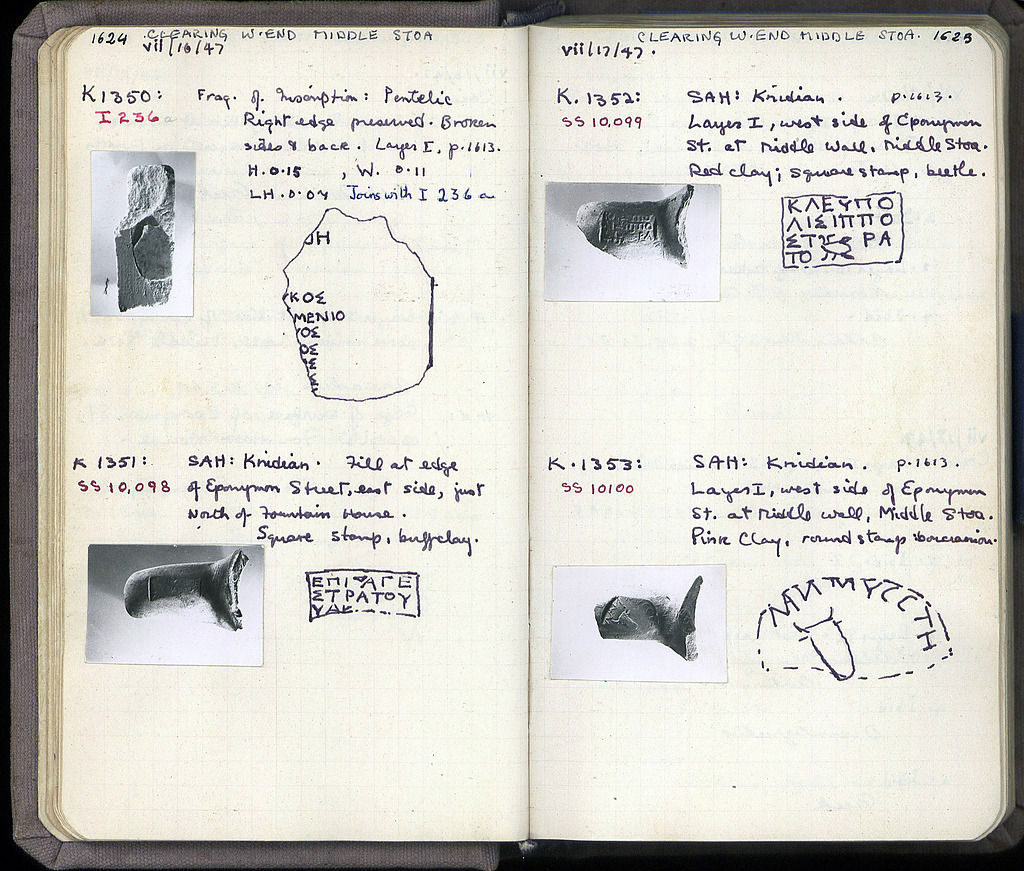 1624 CLEARING W. END MIDDLE STOA
vii/16/47
K 1350: Frag. of Inscription: Pentelic
I 236 a Right edge preserved. Broken
sides & back. Layer I, p. 1613.
H. 0.15 , W. 0.11
LH. 0.04 Joins with I 236 a
ΚΟΣ
ΜΕΝΙΟ
ΟΣ
ΟΣ
K 1351: SAH: Knidian. Fill at edge
SS 10,098 of Eponymon Street, east side, just
North of Fountain House.
Square Stamp, buff clay.
ΕΠΙ ΑΓΕ
ΣΤΡΑΤΟΥ
CLEARING W. END MIDDLE STOA. 1625
vii/17/47.
K. 1352: SAH: Knidian. p. 1613.
SS 10,099 Layer I, west side of Eponymon
St. at Middle Wall, Middle Stoa.
Red clay; square stamp, beetle.
ΚΛΕΥΠΟ
ΛΙΣΙΠΠΟ
ΣΤ ΡΑ
ΤΟ
K. 1353: SAH: Knidian. p. 1613.
SS 10100 Layer I, west side of Eponymon
St. at Middle Wall, Middle Stoa.
Pink Clay, round stamp: boucranion.